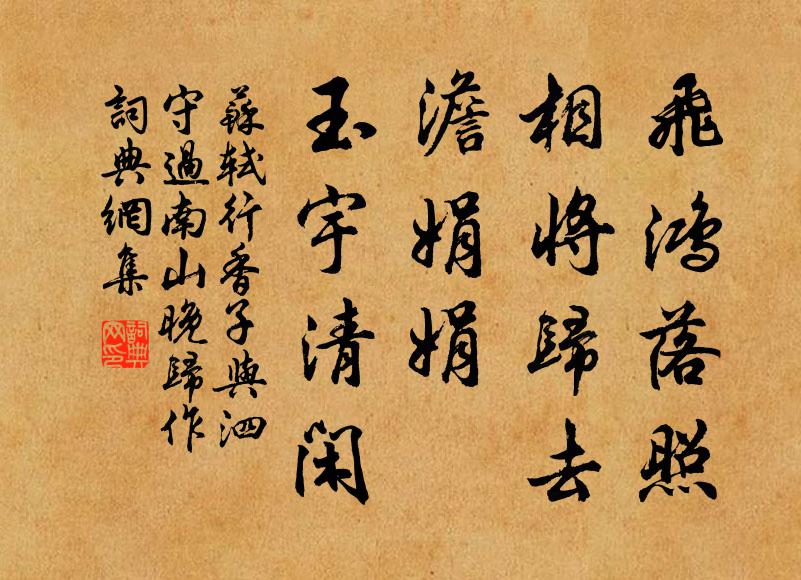 飛鴻落照
相將歸去
澹娟娟
玉宇清閑
蘇軾行香子與泗
守過南山晚歸作
詞典網集
詞典
网印